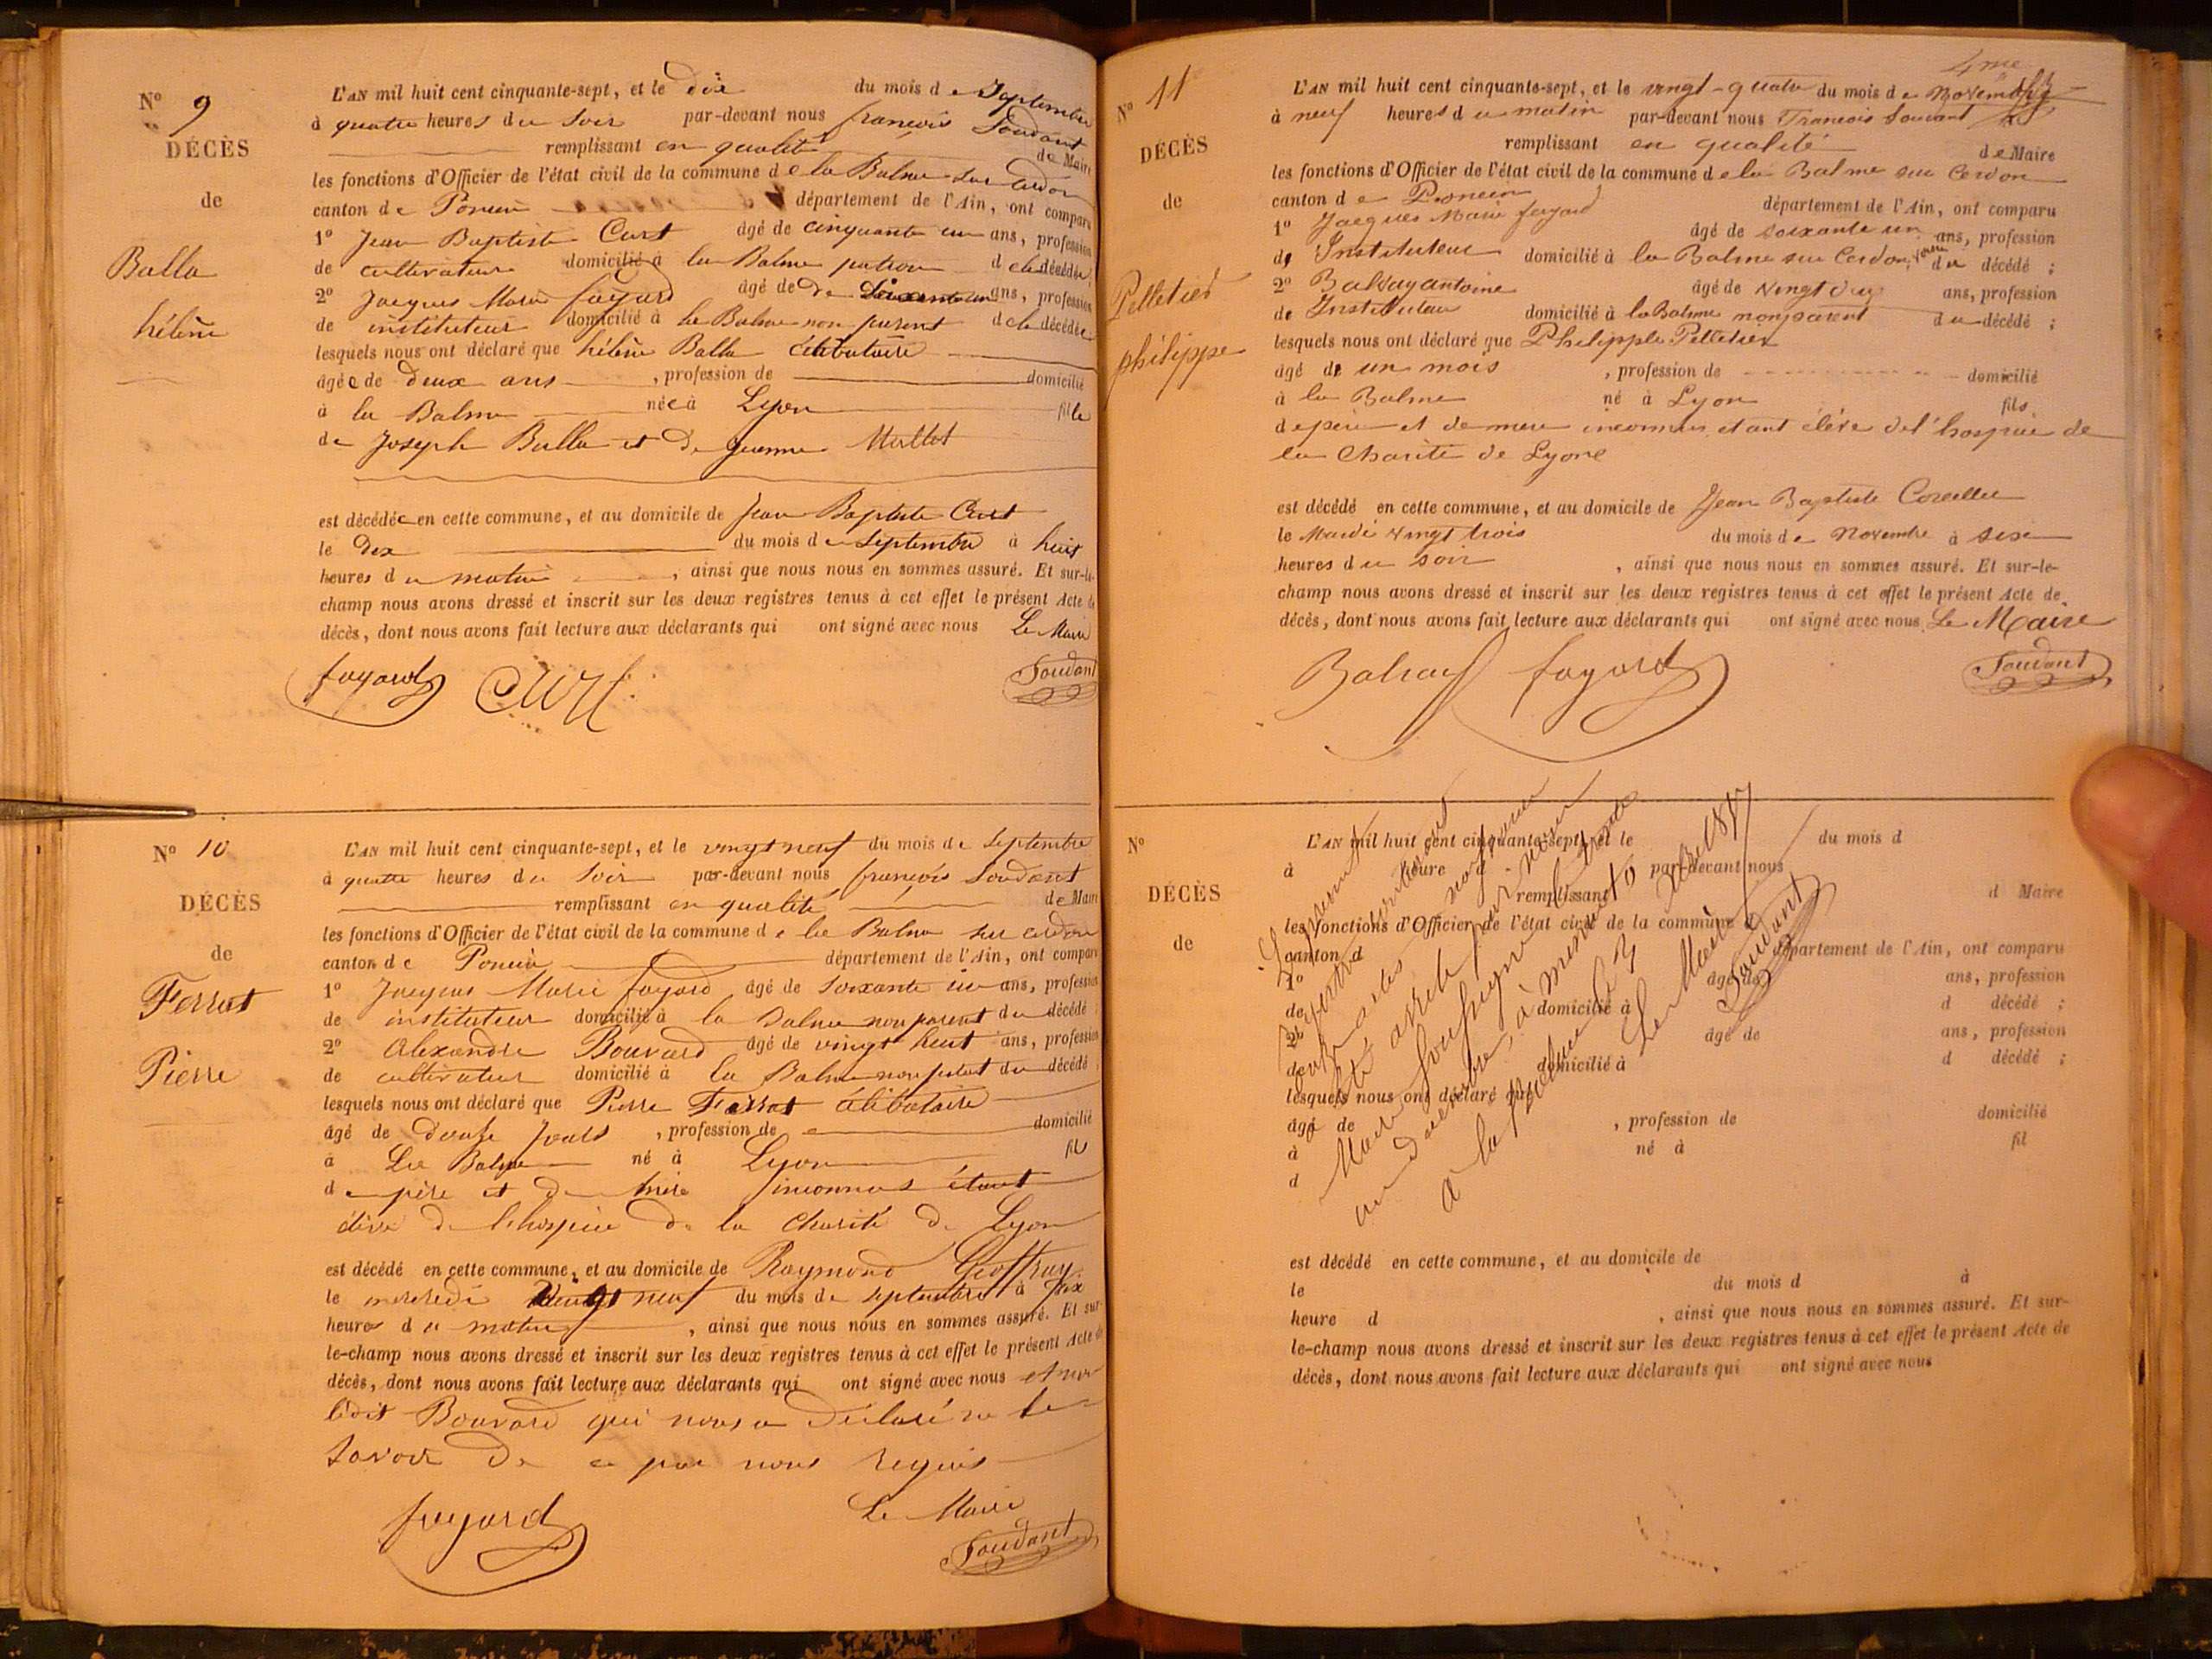 N° 9
DÉCÈS
de
Balla
hélène
L'AN mil huit cent cinquante-sept, et le dix du mois de Septembre
à quatre heures du soir par-devant nous françois Soudant
remplissant en qualité de Maire
les fonctions d'Officier de l'état civil de la commune de la Balme sur Cerdon
canton de Poncin département de l'Ain, ont comparu
1° Jean Baptiste Curt âgé de cinquante un ans, profession
de cultivateur domicilié à la Balme patron de la décédée;
2° Jacques Marie fayard âgé de de Soixante un ans, profession
de instituteur domicilié à la Balme non parent de la décédée
lesquels nous ont déclaré que hélène Balla célibataire
âgée de deux ans, profession de domicilié
à la Balme née à Lyon fille
de Joseph Balla et de jeanne
est décédée en cette commune, et au domicile de Jean Baptiste Curt
le dix du mois de Septembre à huit
heures du matin, ainsi que nous nous en sommes assuré. Et sur-le-
champ nous avons dressé et inscrit sur les deux registres tenus à cet effet le présent Acte de
décès, dont nous avons fait lecture aux déclarants qui ont signé avec nous Le Maire
fayard Curt Soudant
N° 10
DÉCÈS
de
Ferrat
Pierre
L'AN mil huit cent cinquante-sept, et le vingt neuf du mois de Septembre
à quatre heures du soir par-devant nous françois Soudant
remplissant en qualité de Maire
les fonctions d'Officier de l'état civil de la commune de la Balme sur cerdon
canton de Poncin département de l'Ain, ont comparu
1° Jacques Marie fayard âgé de soixante un ans, profession
de instituteur domicilié à la Balme non parent du décédé;
2° Alexandre Bouvard âgé de vingt huit ans, profession
de cultivateur domicilié à la Balme non parent du décédé;
lesquels nous ont déclaré que Pierre Ferrat célibataire
âgé de douze jours, profession de domicilié
à La Balme né à Lyon fils
de père et de mère inconnus étant
élève de l'hospice de la Charité de Lyon
est décédé en cette commune, et au domicile de Raymond Geoffray
le mercredi vingt neuf du mois de septembre à dix
heures du matin, ainsi que nous nous en sommes assuré. Et sur-
le-champ nous avons dressé et inscrit sur les deux registres tenus à cet effet le présent Acte de
décès, dont nous avons fait lecture aux déclarants qui ont signé avec nous et non
ledit Bouvard qui nous a déclaré ne le
savoir de ce par nous requis
Le Maire
fayard Soudant
4me
N° 11
DÉCÈS
de
Pelletier
philippe
L'AN mil huit cent cinquante-sept, et le vingt-quatre du mois de Novembre
à neuf heures du matin par-devant nous Francois Soudant
remplissant en qualité de Maire
les fonctions d'Officier de l'état civil de la commune de la Balme sur Cerdon
canton de Poncin département de l'Ain, ont comparu
1° Jacques Marie fayard âgé de soixante un ans, profession
de Instituteur domicilié à la Balme sur Cerdon, du décédé;
2° Balvay antoine âgé de vingt ans, profession
de Instituteur domicilié à la Balme non parent du décédé;
lesquels nous ont déclaré que Philippe Pelletier
âgé de un mois, profession de domicilié
à la Balme né à Lyon fils
de père et de mere inconnus etant élève de l'hospice de
la Charité de Lyon
est décédé en cette commune, et au domicile de Jean Baptiste
le Mardi vingt trois du mois de Novembre à six
heures du soir, ainsi que nous nous en sommes assuré. Et sur-le-
champ nous avons dressé et inscrit sur les deux registres tenus à cet effet le présent Acte de
décès, dont nous avons fait lecture aux déclarants qui ont signé avec nous Le Maire
Balvay fayard Soudant
N°
DÉCÈS
de
L'AN mil huit cent cinquante-sept, et le du mois d
à heure d par-devant nous
remplissant d Maire
les fonctions d'Officier de l'état civil de la commune d
canton d département de l'Ain, ont comparu
1° âgé de ans, profession
de domicilié à d décédé ;
2° âgé de ans, profession
de domicilié à d décédé ;
lesquels nous ont déclaré que
âgé de , profession de domicilié
à né à fil
d
Le présent registre
été arrêté par nous
Maire soussigné le trente
un décembre à minuit
à la Balme le
Le Maire
Soudant
est décédé en cette commune, et au domicile de
le du mois d à
heure d , ainsi que nous nous en sommes assuré. Et sur-
le-champ nous avons dressé et inscrit sur les deux registres tenus à cet effet le présent Acte de
décès, dont nous avons fait lecture aux déclarants qui ont signé avec nous